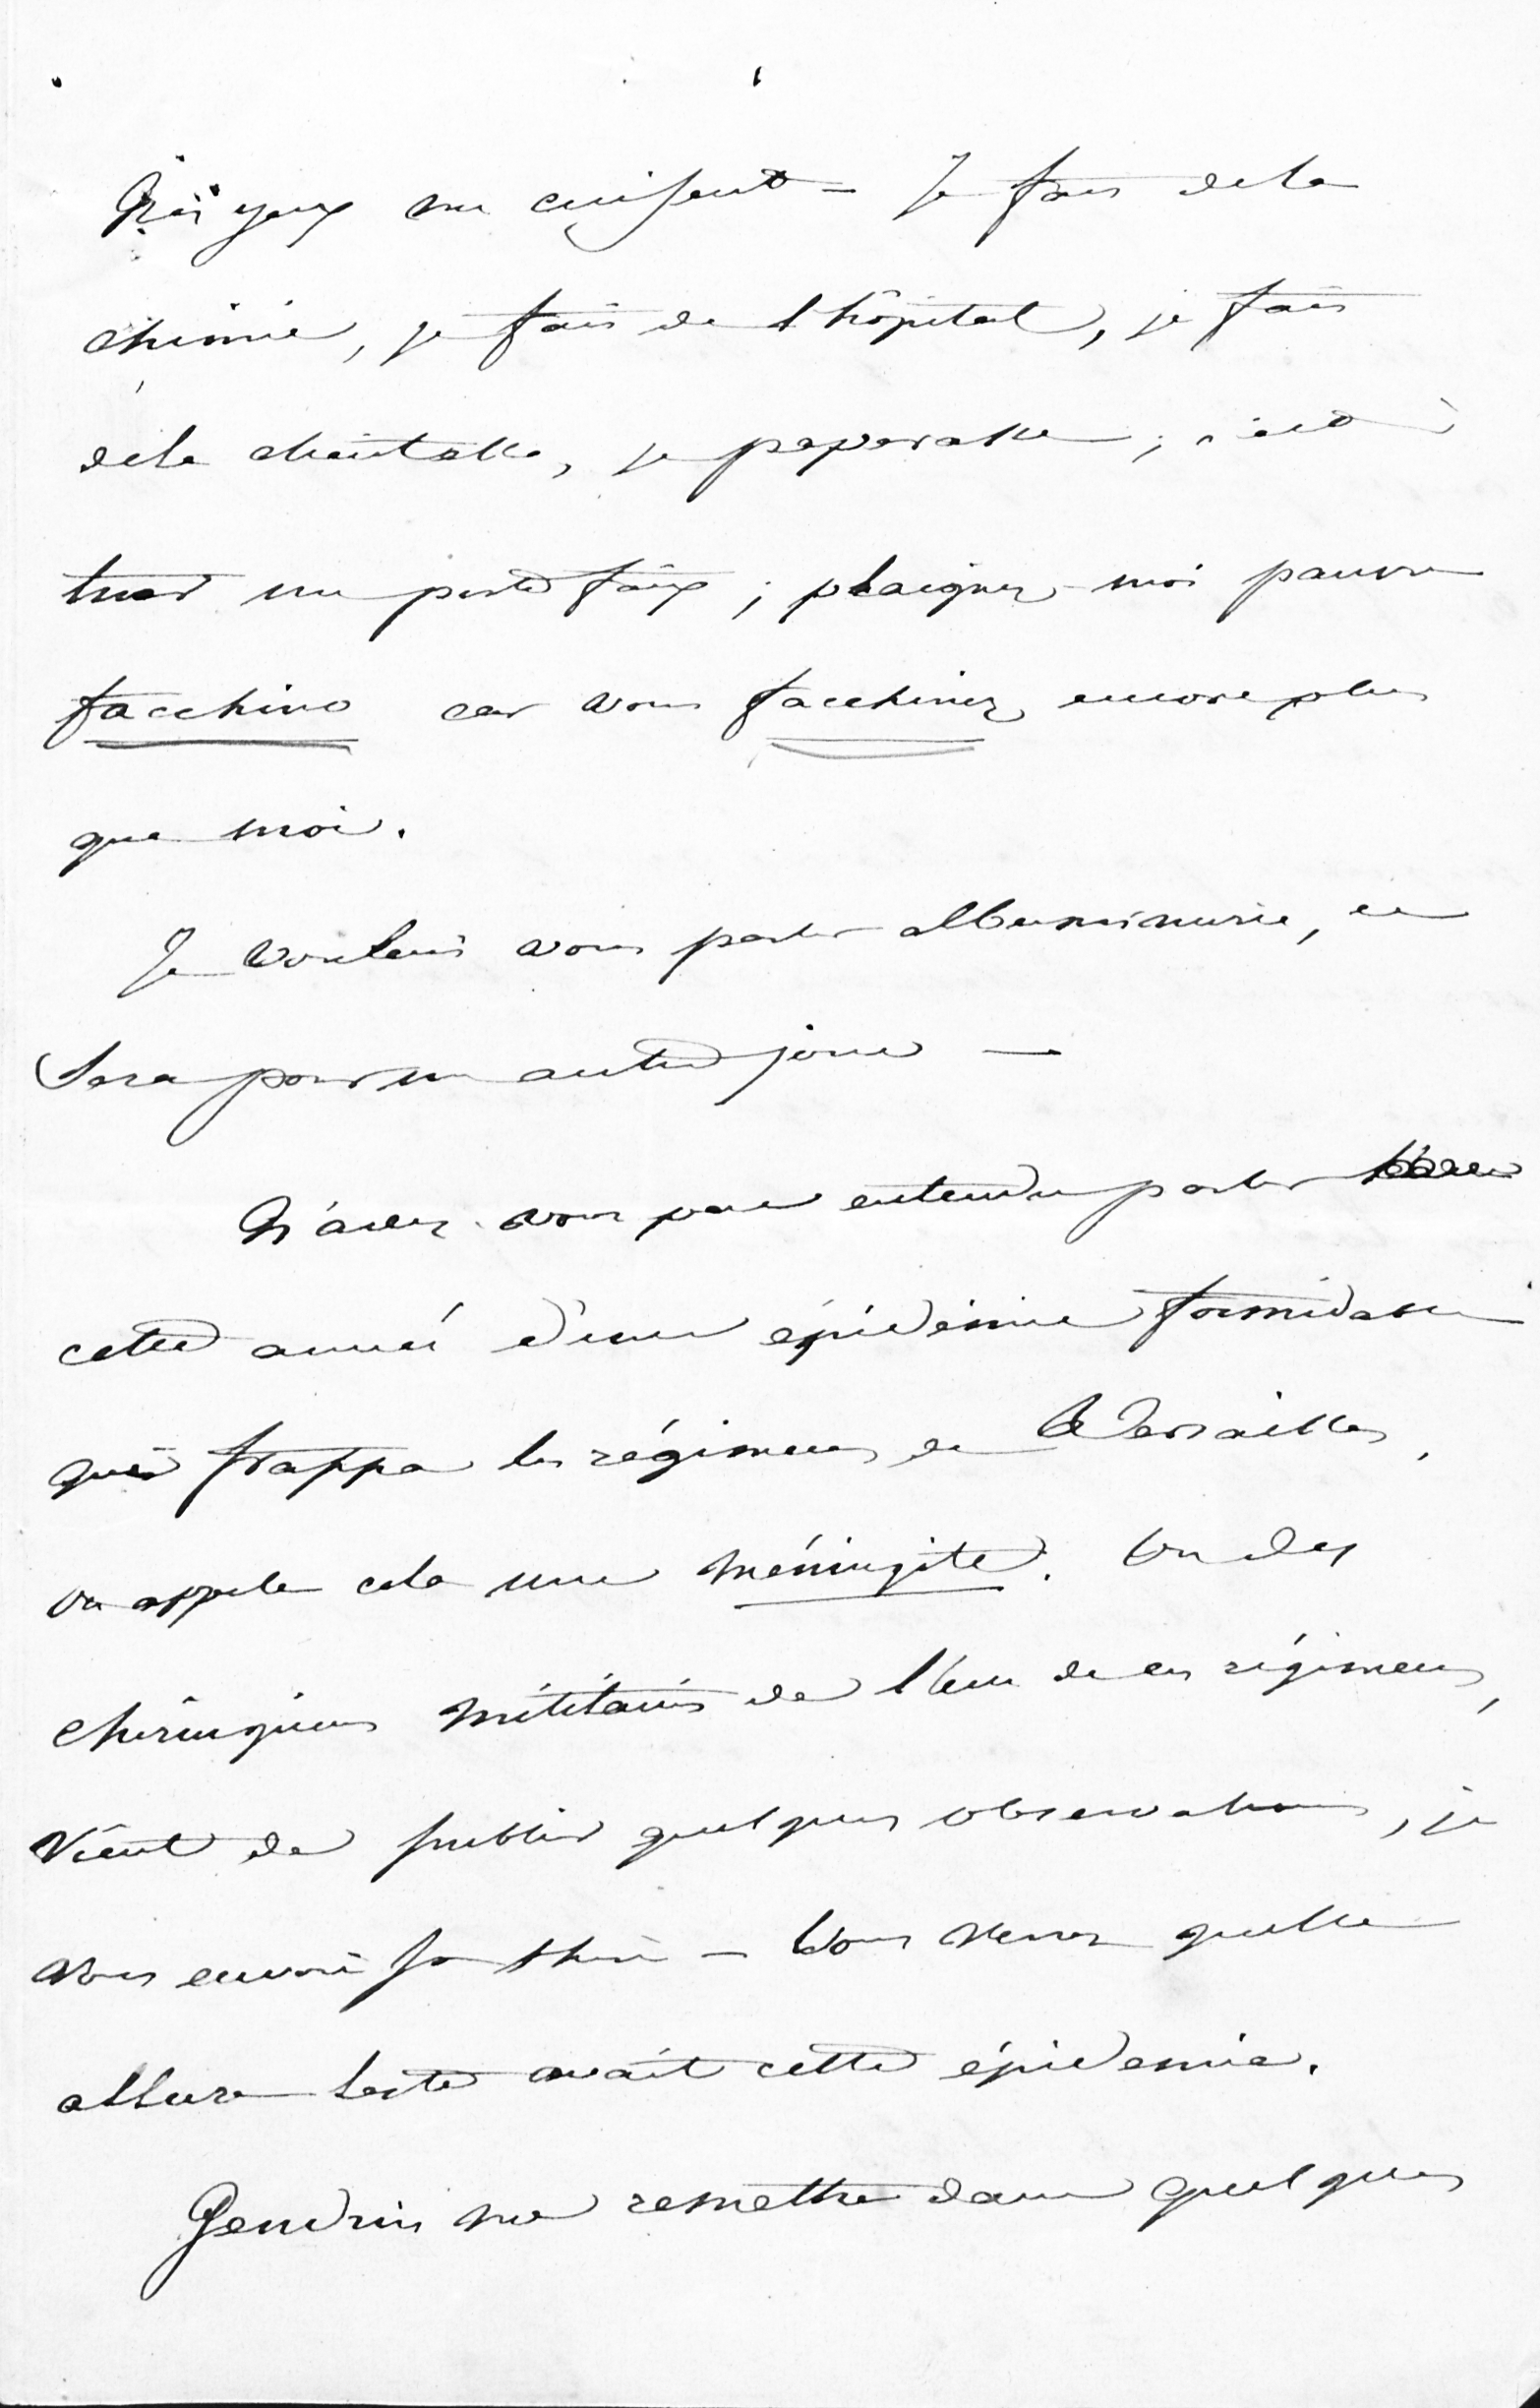 Mes yeux me cuisent – Je fais dela
chimie, je fais de l'hôpital, je fais
dela clientelle, je paperasse ; c'est à
tuer un porte faix ; plaignez-moi pauvre
facchino car vous facchinez encore plus
que moi.
Je voulais vous parler albuminurie, ce
sera pour un autre jour —
N'avez-vous pas entendu parler
cette année d'une épidémie formidable
qui frappa les régimens de Versailles,
on appela cela une méningite. Un des
chirurgiens militaires de l'un de ces régimens,
vient de publier quelques observations, je
vous envoie sa thèse – Vous verrez quelle
allure avait cette épidemie.
Gendrin me remettra dans quelques